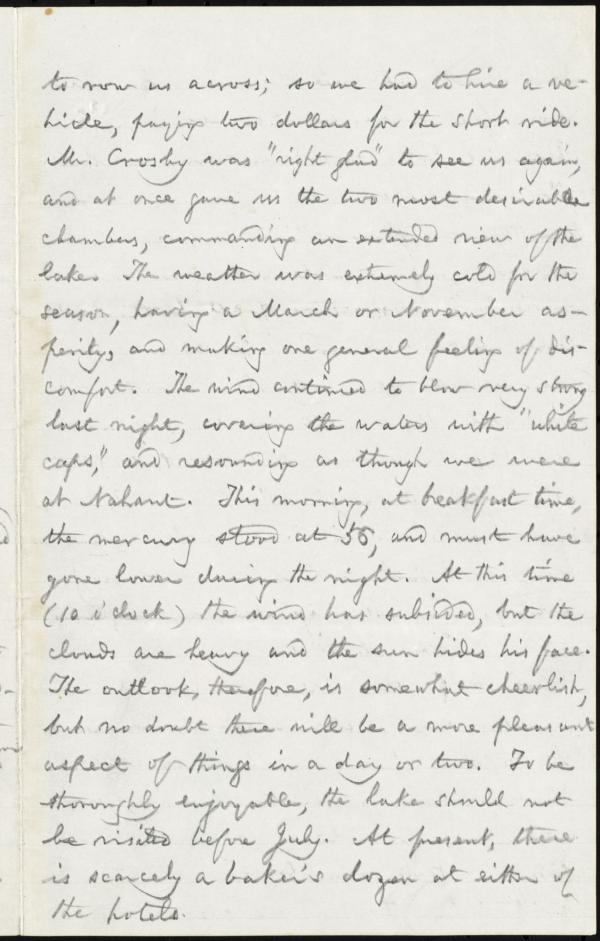 to row us across; so we had to hire a ve-
hicle, paying two dollars for the short ride.
Mr. Crosby was "right glad" to see us again,
and at once gave us the two most desirable
chambers, commanding an extended view of the
lake. The weather was extremely cold for the
season, having a March or November as-
perity, and making one general feeling of dis-
comfort. The wind continued to blow very strong
last night, covering the waters with "white
caps," and resounding as though we were
at Nahant. This morning, at breakfast time,
the mercury stood at 56, and must have
gone lower during the night. At this time
(10 o'clock) the wind has subsided, but the
clouds are heavy and the sun hides his face.
The outlook, therefore, is somewhat cheerlish,
but no doubt there will be a more pleasant
aspect of things in a day or two. To be
thoroughly enjoyable, the lake should not
be visited before July. At present, there
is scarcely a baker's dozen at either of
the hotels.